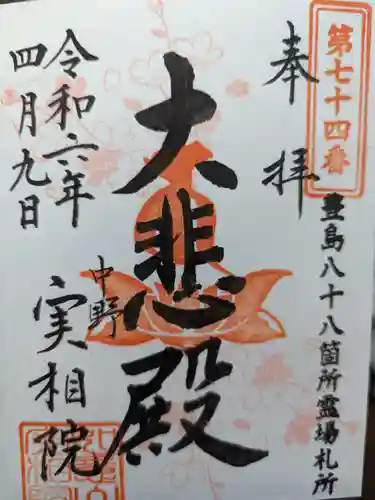 第七十四番
豊島八十八箇所霊場札所
奉拝
大悲殿
中野
実相院
令和六年
四月九日